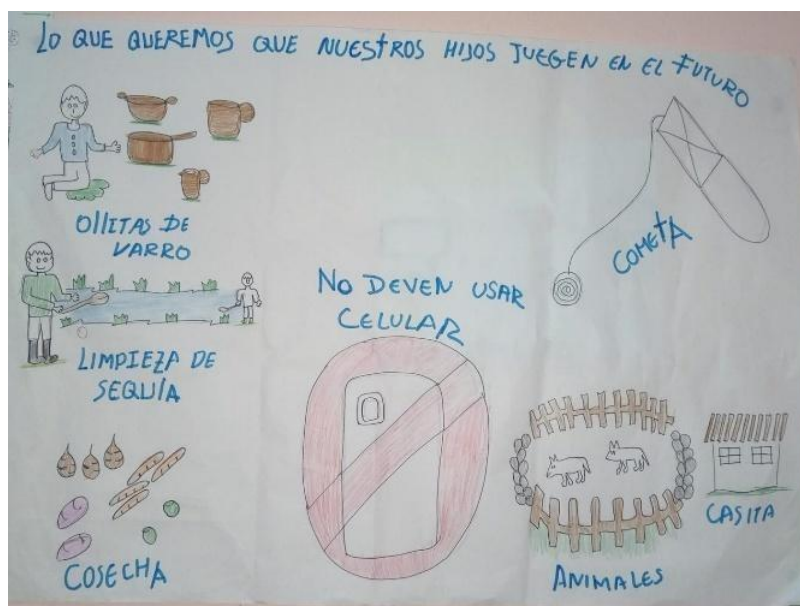 LO QUE QUEREMOS QUE NUESTROS HIJOS JUEGEN EN EL FUTURO
OllITAS DE
VARRO
COMETA
LIMPIEZA DE
SEQUÍA
NO DEVEN USAR
CELULAR
COSECHA
ANIMALES
CASITA